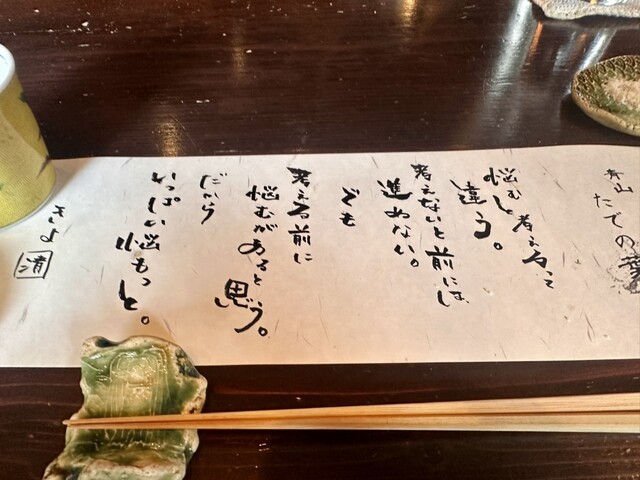 青山
たでの葉
悩むと考えるって
違う。
考えないと前には
進めない。
でも
考える前に
悩むがあると
思う。
だから
いっぱい悩もっと。
きよ
清